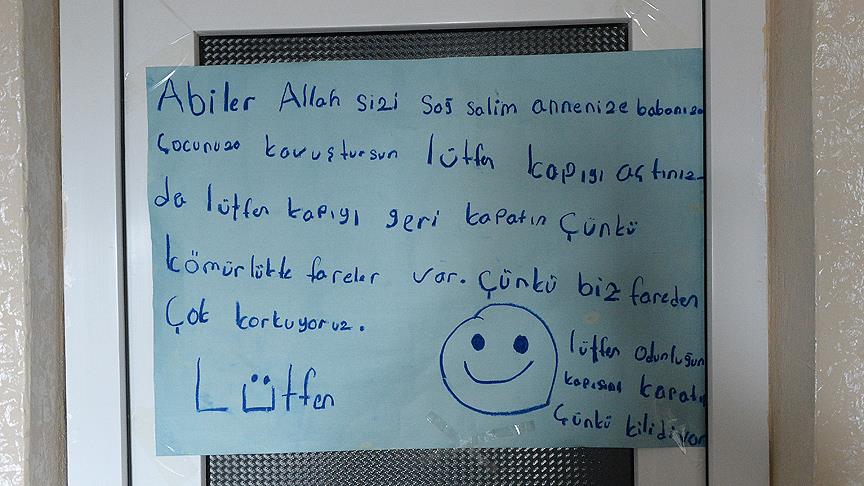 Abiler Allah sizi sağ salim annenize babanıza
Çocunuza kavuştursun lütfen kapıyı açtınız-
da lütfen kapıyı geri kapatın Çünkü
kömürlükte fareler var. Çünkü biz fareden
Çok korkuyoruz.
Lütfen
lütfen odunluğun
kapısını kapatın
Çünkü kilidi var